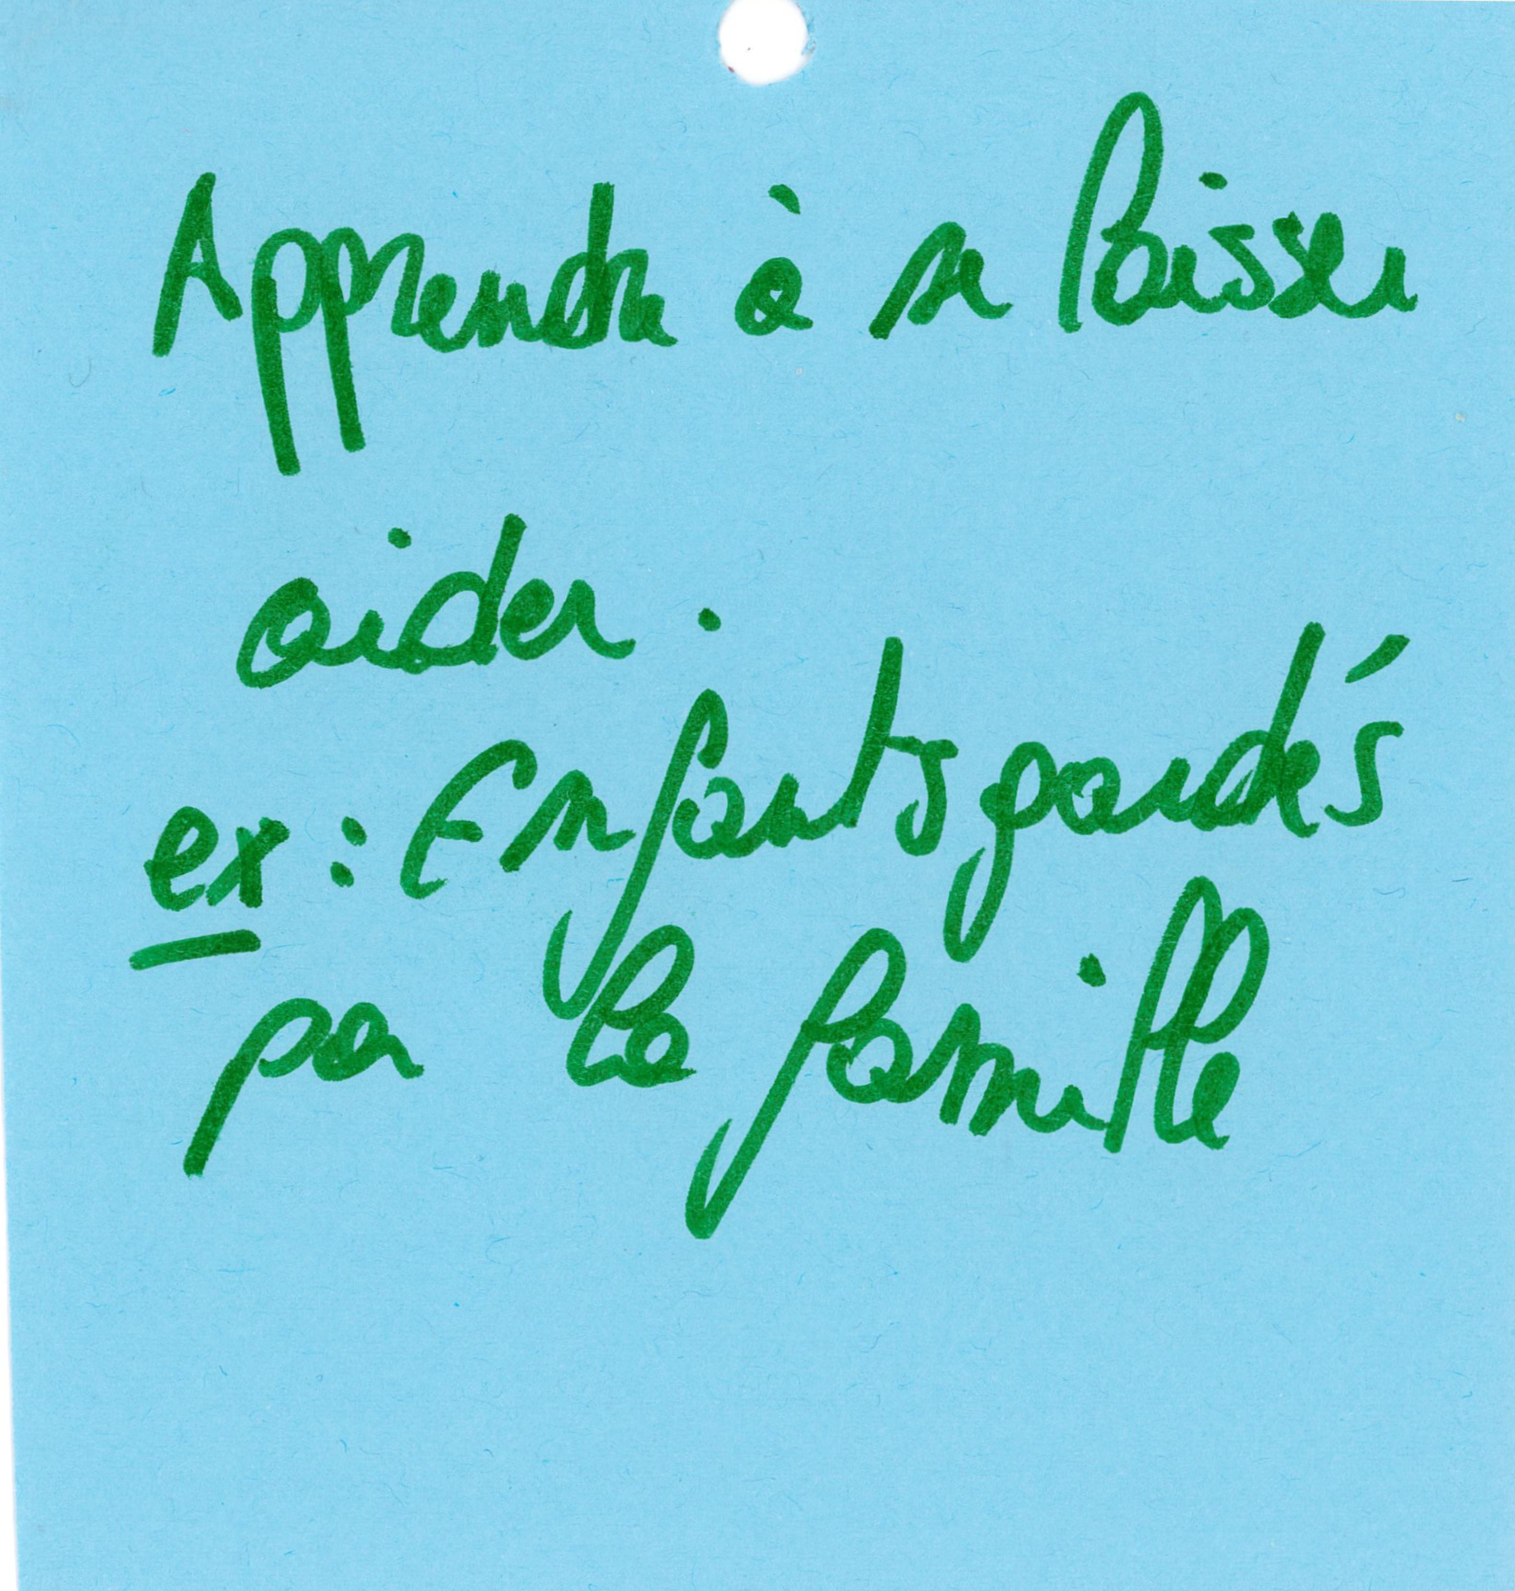 Apprendre à se laisser
aider.
ex : Enfants gardés
par la famille